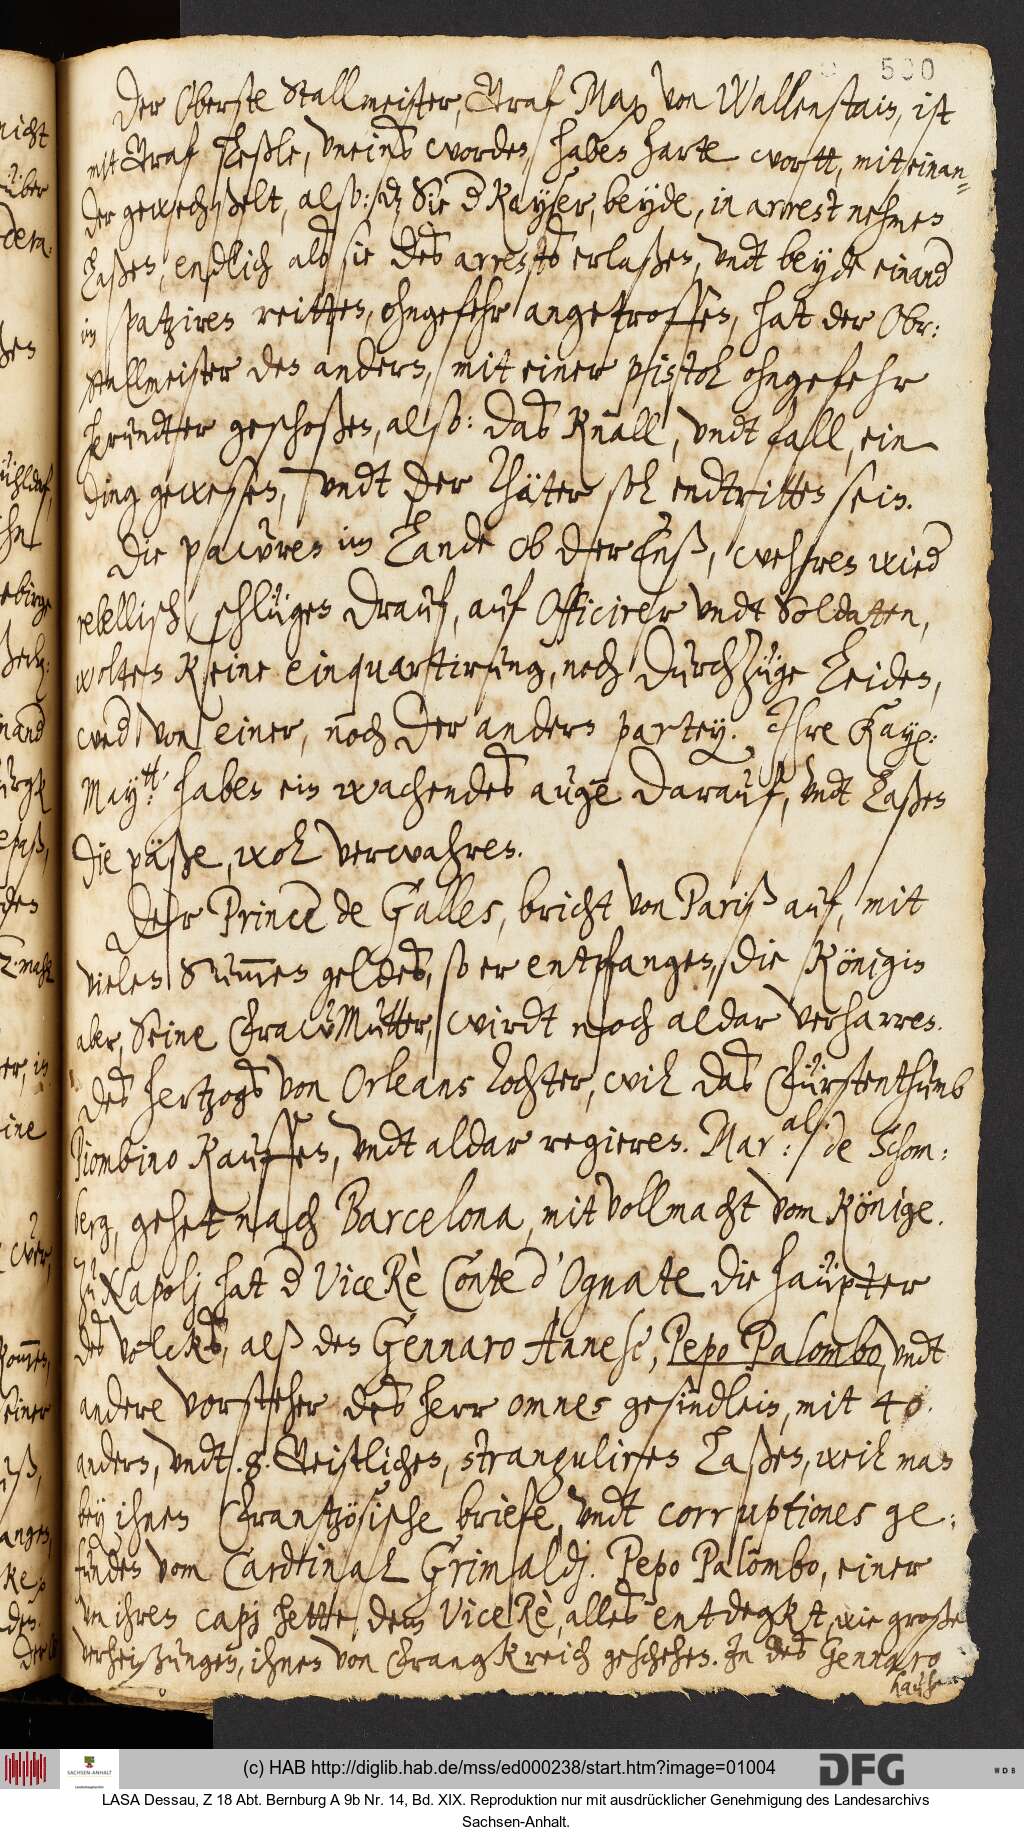 500
Der Oberste Stallmeister, Graf Max von Wallenstain, ist
mit Graf Keßle, vneinß worden, haben harte wortt, mit einan-
der gewechßelt, also: dz Sie d Kayser, beyde, in arrest nehmen
laßen, endlich alß sie des arrests erlaßen, vndt beyde einand
im spatziren reitten, ohngefehr angetroffen, hat der Obr:
stallmeister den andern, mit einer pistol ohngefehr
heründter geschoßen, also: daß Knall, vndt fall, ein
ding gewesen, vndt der Thäter sol endtritten sein.
Die pawren im Lande ob der Enß, wehren wied
rebellisch, schlügen drauf, auf Officirer vndt Soldatten,
wolten Keine einquartirung, noch durchzüge leiden,
wed von einer, noch der andern partey. Ihre Kay:
Maytt: haben ein wachendes auge darauf, vndt laßen
die päße, wol verwahren.
Der Prince de Galles, bricht von Pariß auf, mit
vielen Summen geldes, so er entpfangen, die Königin
aber, Seine FrawMutter, wirdt noch aldar verharren.
Des hertzogs von Orleans Tochter, wil das Fürstenthumb
Piombino Kauffen, vndt aldar regieren. Mar:al: de Schom-
berg, gehet nach Barcelona, mit vollmacht vom Könige.
Zu Napolj hat d Vice Rè Conte d'Ognate die haüpter
des volcks, alß den Gennaro Annesi, Pepo Palombo, vndt
andere vorsteher des herr omnes gesindlein, mit 40.
andern, vndt .8. Geistlichen, stranguliren laßen, weil man
bey ihnen Frantzösische briefe, vndt corruptiones ge-
funden vom Cardinal Grimaldj. Pepo Palombo, einer
von ihren capj hette dem Vice Rè, alles entdegkt, wie große
verheißungen, ihnen von Frangkreich geschehen. In des Gennaro
hause
(c) HAB http://diglib.hab.de/mss/ed000238/start.htm?image=01004
SACHSEN-ANHALT
DFG
WDB
LASA Dessau, Z 18 Abt. Bernburg A 9b Nr. 14, Bd. XIX. Reproduktion nur mit ausdrücklicher Genehmigung des Landesarchivs
Sachsen-Anhalt.